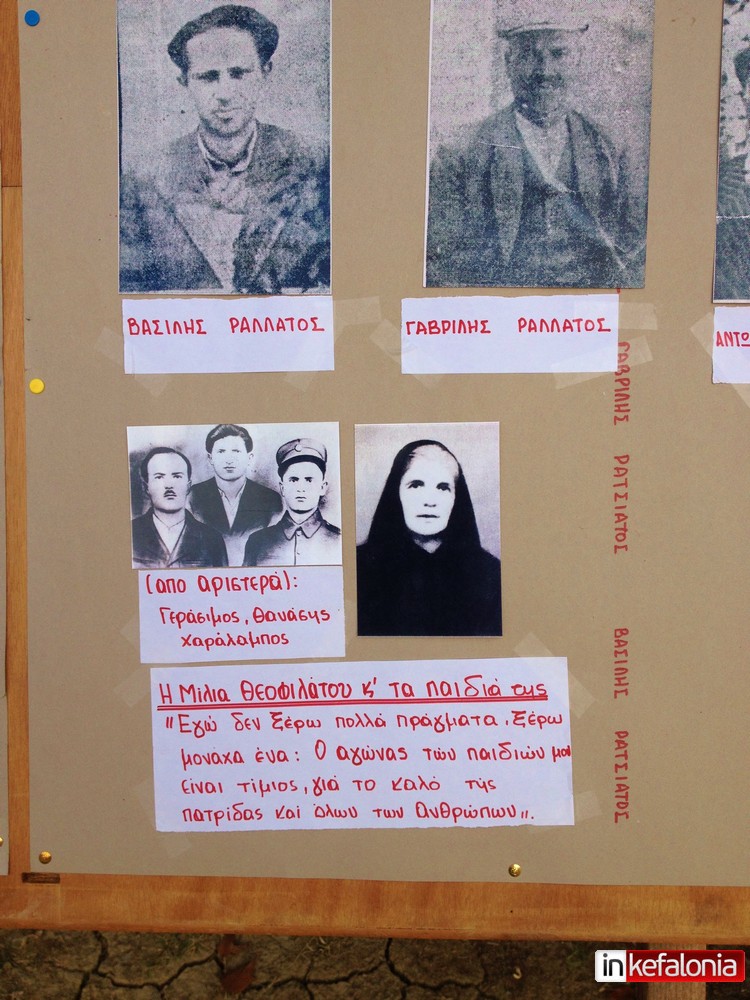 ΒΑΣΙΛΗΣ ΡΑΛΛΑΤΟΣ
ΓΑΒΡΙΛΗΣ ΡΑΛΛΑΤΟΣ
ΑΝΤΩ
ΓΑΒΡΙΛΗΣ ΡΑΤΣΙΑΤΟΣ
ΒΑΣΙΛΗΣ ΡΑΤΣΙΑΤΟΣ
(απο αριστερά):
Γεράσιμος, Θανάσης
Χαράλαμπος
Η Μίλια Θεοφιλάτου κ' τα παιδιά της
"Εγώ δεν ξέρω πολλά πράγματα, ξέρω
μονάχα ένα: Ο αγώνας των παιδιών μου
είναι τίμιος, γιά το καλό τής
πατρίδας καί όλων των Ανθρώπων".
inkefalonia